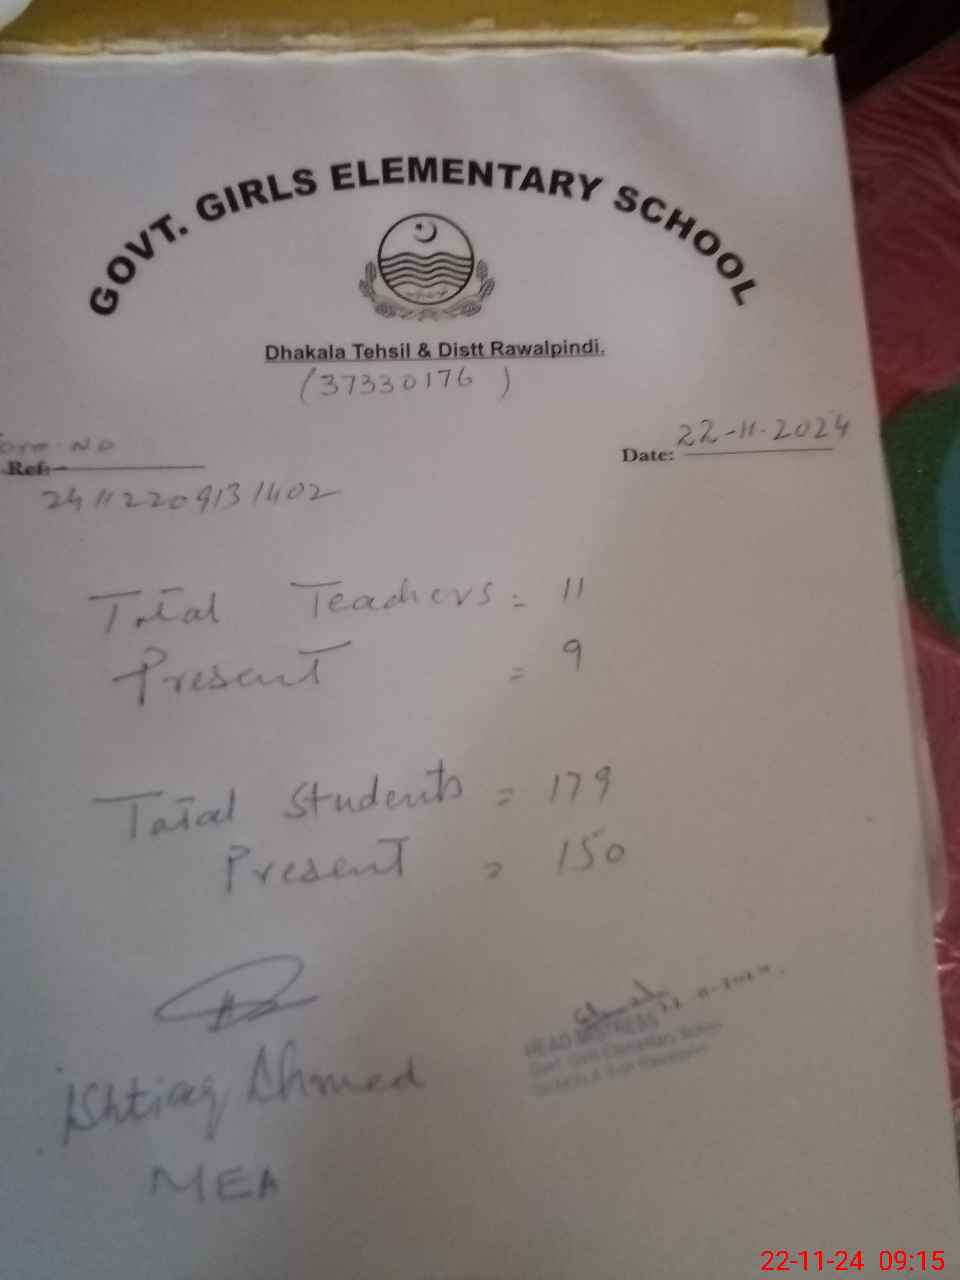 GOVT. GIRLS ELEMENTARY SCHOOL
Dhakala Tehsil & Distt Rawalpindi.
(37330176 )
orm No
Ref:
Date: 22-11-2024
24112209131402
Total Teachers = 11
Present = 9
Total Students = 179
Present = 150
22-11-2024.
HEAD MISTRESS
Govt. Girls Elementary School
Ishtiaq Ahmed
MEA
22-11-24 09:15